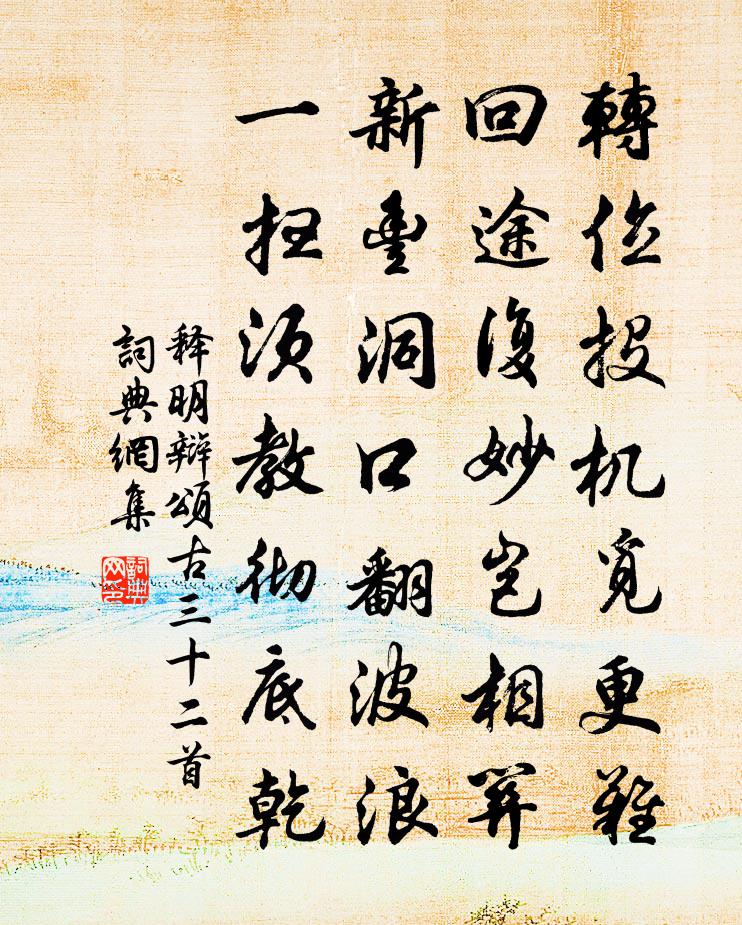 轉位投机覓更難
回途復妙豈相關
新豐洞口翻波浪
一扭须教彻底乾
释明辯頌古三十二首
詞典網集